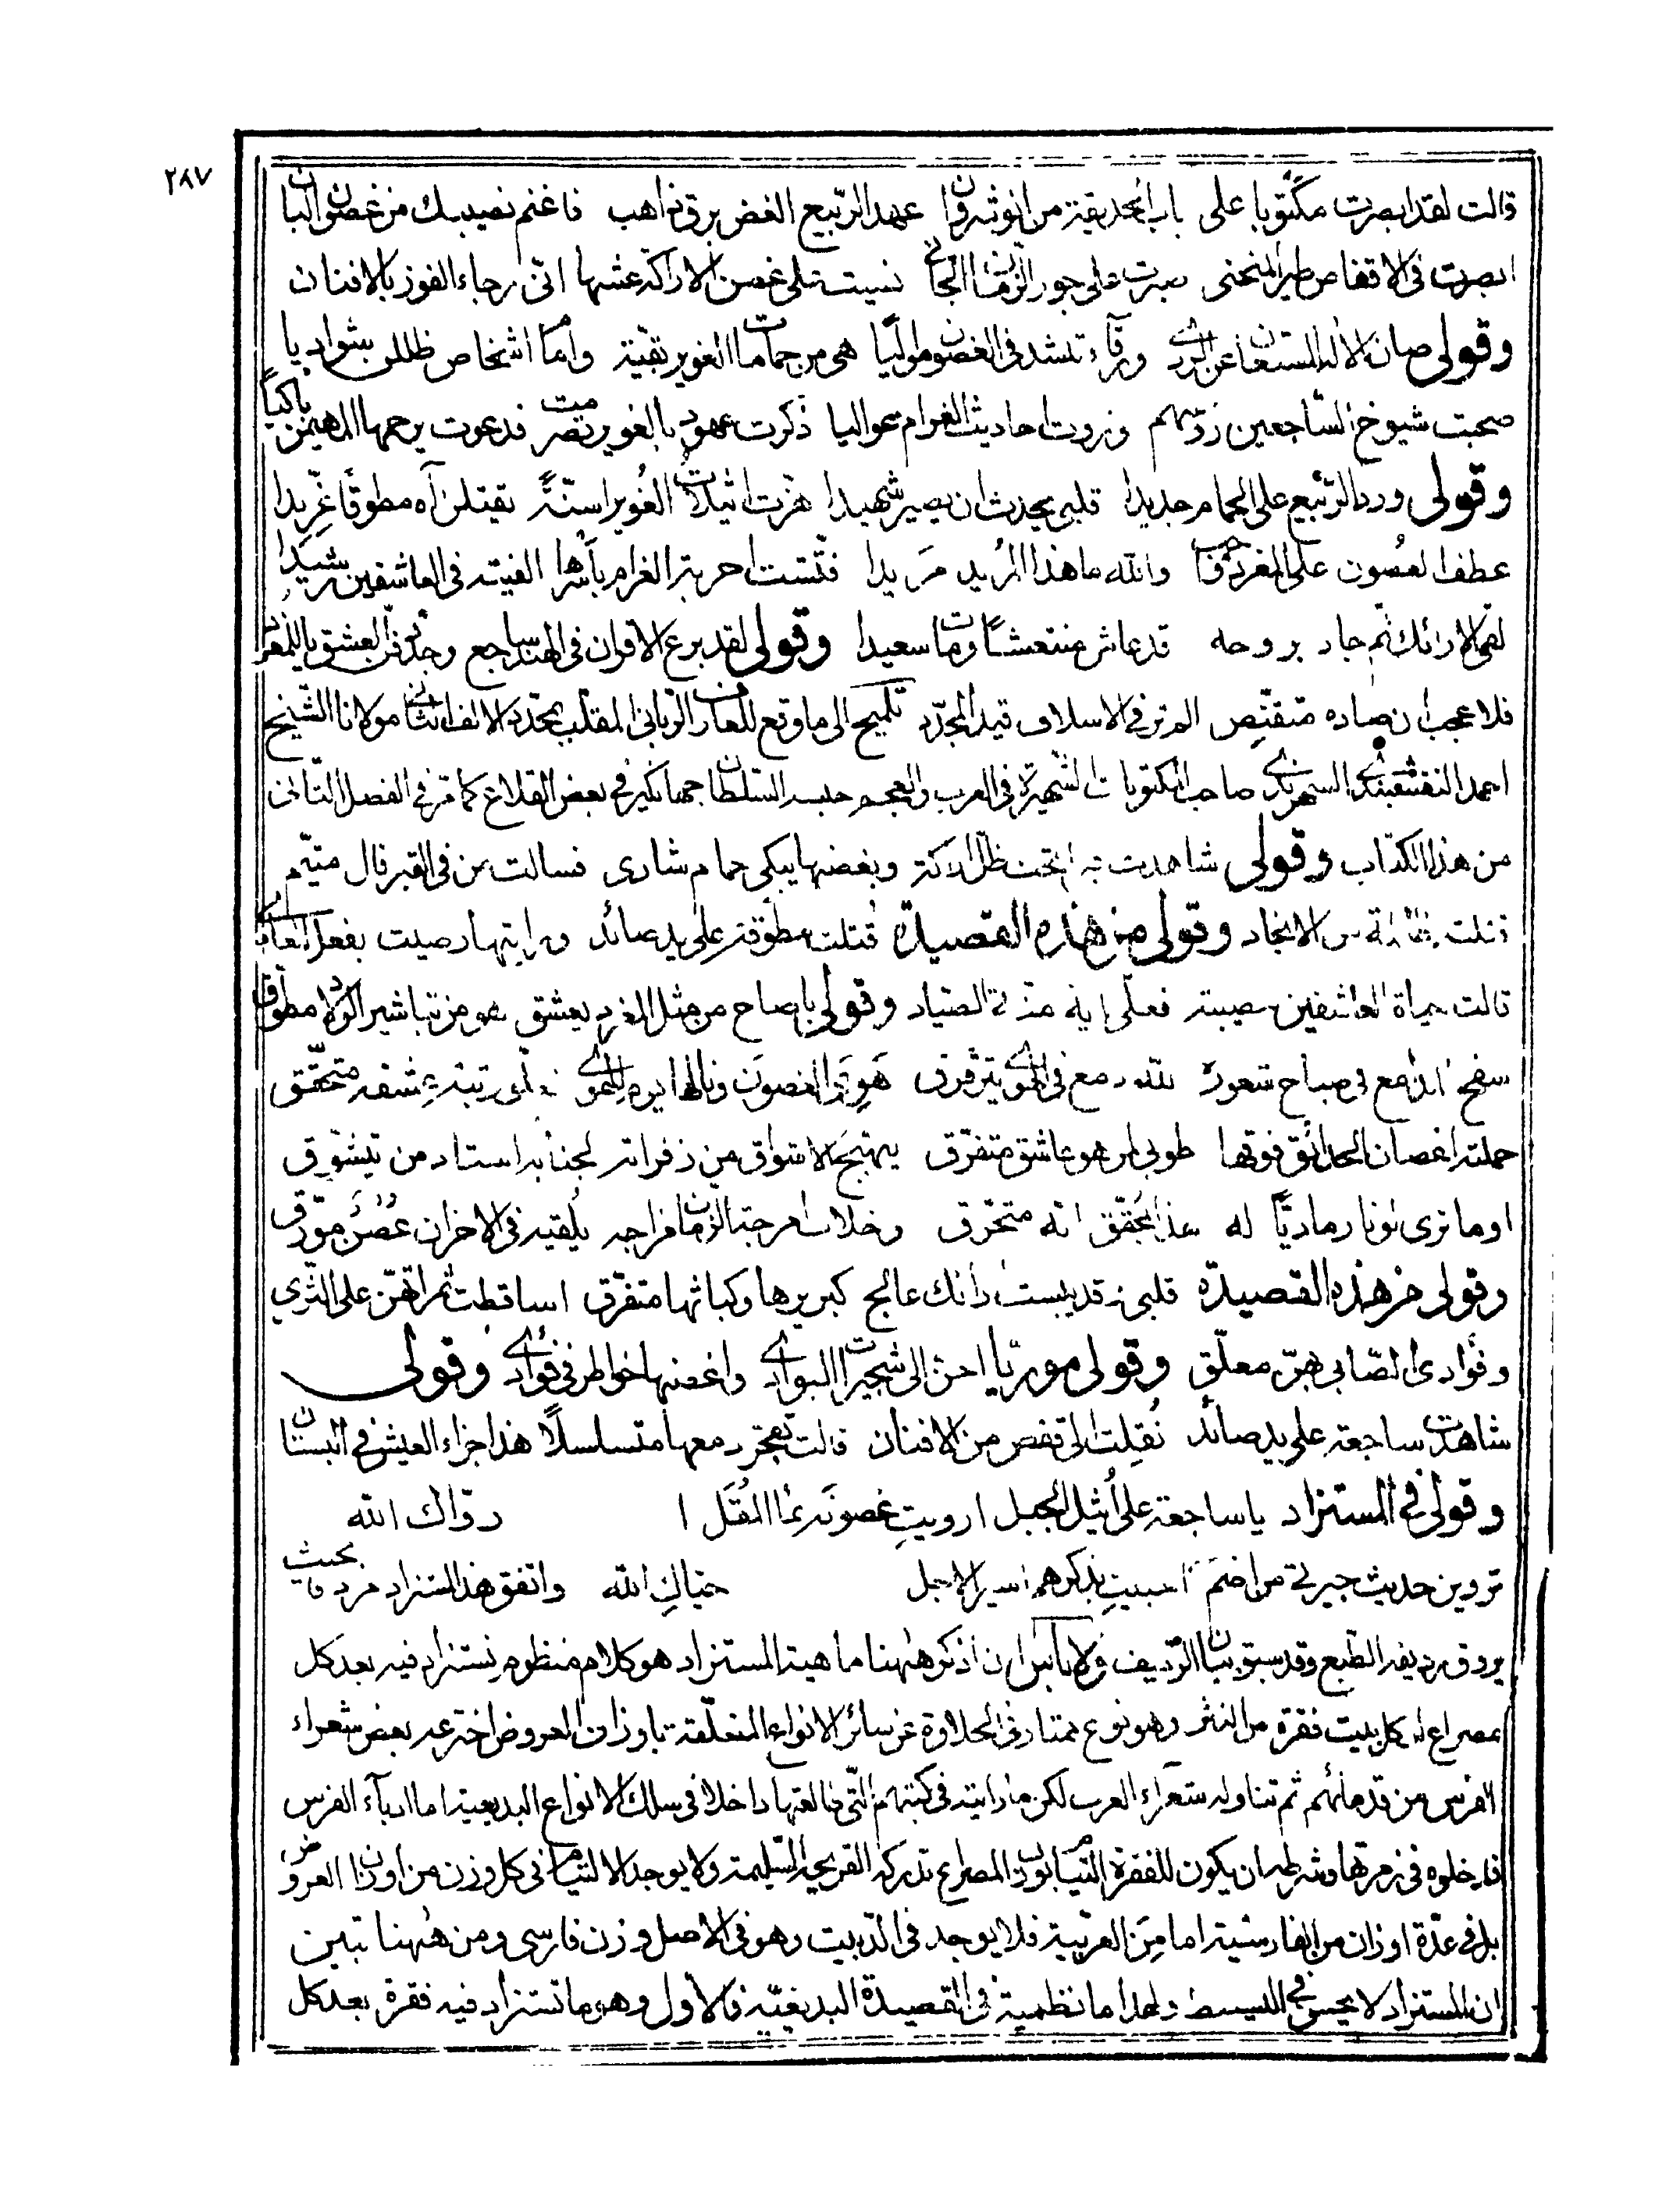 ٢٨٧
قالت لقد ابصرت مكتوبا على باب الحديقة من انوشروان عهد الربيع الغض برق ذاهب فاغنم نصيبك من غصون البان
ابصرت فى الاقفاص طير المنحنى صبرت على جور الزمان الجانى نسيت على غصن الاراكة عشها انى رجاء الفوز بالافنان
وقولى صان الاله المستعان عن الردى ورقاء تنشد فى الغصون مواليا هى من حمامات الغوير بقية واما اشخاص ظللن بواديا
صحبت شيوخ الساجعين زمتهم وروت احاديث الغرام عواليا ذكرت عهود بالغوير تصرمت فدعوت يرحمها المهيمن باكيا
وقولى ورد الربيع على الحمام جديدا قلبى يحدث ان يصير شهيدا هزت اثيلات الغوير اسنة يقتلن آه مطوقا غريدا
عطف الغصون على المغرد والله ما هذا المريد مريدا فتشت احربة الغرام باسرها الفيته فى العاشقين رشيدا
لقى الارائك ثم جاد بروحه قد عاش منتعشا ومات سعيدا وقولى لقد برع الاقران فى الهند ساجع وجدد فن العشق يا للمغرد
فلا عجب ان صاده متقنص الم تر فى الاسلاف قيد المجدد تلميح الى ما وقع للعارف الربانى الملقب بمجدد الالف الثانى مولانا الشيخ
احمد النقشبندى السهرندى صاحب المكتوبات الشهيرة فى العرب والعجم حبسه السلطان جهانگير فى بعض القلاع كما مر فى الفصل الثانى
من هذا الكتاب وقولى شاهدت تحت ظل اراكة وبغصنها يبكى حمام شارى فسالت من فى القبر قال متيم
من الانجاد وقولى من هذه القصيدة قتلت مطوقة على يد صائد ورايتها رضيت بفعل
قالت حياة العاشقين مصيبة فعلى اية منة الصياد وقولى يا صاح من مثل المغرد يعشق هو من تباشير الولاد مطوق
سفح الدمع فى صباح شعوره لله دمع فى الهوى يترقرق هوى الغصون ونالها يوم النوى على رتبة عشقه متحقق
حملته اغصان الحدائق فوقها طوبى لمن هو عاشق متفرق يهيج الاشواق من زفراته لجنابه استاد من يتشوق
اوما ترى لونا رماديا له هذا يحقق انه متحرق وخلاسة مرجة الزمان مزاجه يلقيه فى الاحزان غصن مورق
وقولى من هذه القصيدة قلبى قد يبست اراك عالج كبريرها وكباثها متفرق اساقطت ثمراتهن على الثرى
وفؤادى الصابى بهن معلق وقولى موريا احن الى شجيرات البوادى واغصنها خواطر فى فؤادى وقولى
شاهدت ساجعة على يد صائد نقلت الى قفص من الافنان قالت تفجر دمعها متسلسلا هذا جزاء العيش فى البستان
وقولى فى المستزاد يا ساجعة على اثيل الجبل ارويت غصونه بماء المقل روّاك الله
تروين حديث جيرة من اضم احببت بذكرهم اسير الاجل حيّاك الله واتفق هذا المستزاد مردفا بحيث
يروق رديفه الطبع وقد سبق بيان الرديف ولا باس ان اذكر ههنا ماهية المستزاد هو كلام منظوم يستزاد فيه بعد كل
مصراع او كل بيت فقرة من النثر وهو نوع ممتاز فى الحلاوة عن سائر الانواع المتعلقة باوزان العروض اخترعه بعض شعراء
الفرس من قدمائهم ثم تناوله شعراء العرب لكن ما رايته فى كتبهم التى طالعتها داخلا فى سلك الانواع البديعية اما ادباء الفرس
فادخلوه فى زمرتها وشرطه ان يكون للفقرة التيام بوزن المصراع تدركه القريحة السليمة ولا يوجد الالتيام فى كل وزن من اوزان العروض
بل فى عدة اوزان من الفارسية اما من العربية فلا يوجد فى الدبيت وهو فى الاصل وزن فارسى ومن ههنا تبين
ان المستزاد لا يحسن فى البسيط ولهذا ما نظمته فى القصيدة البديعية فالاول وهو ما تستزاد فيه فقرة بعد كل